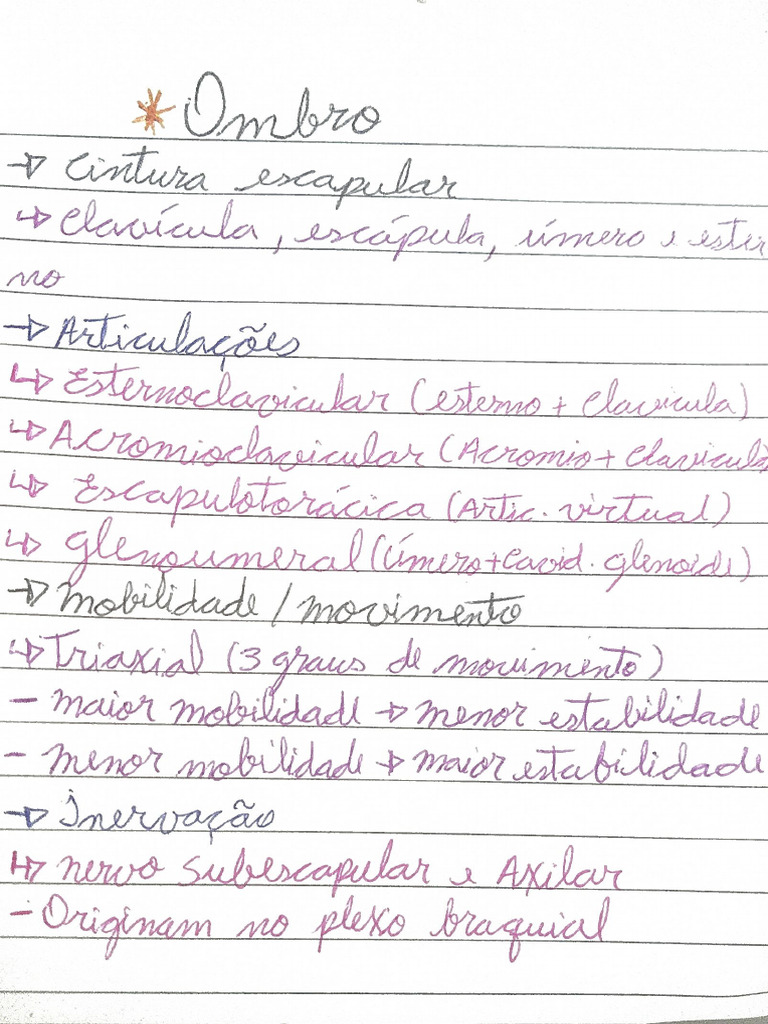 * Ombro
→ Cintura escapular
↳ Clavícula, escápula, úmero e ester
no
→ Articulações
↳ Esternoclavicular (esterno + Clavicula)
↳ Acromioclavicular (Acromio + Clavicula)
↳ Escapulotorácica (Artic. virtual)
↳ glenoumeral (Úmero + Cavid. glenoide)
→ mobilidade / movimento
↳ Triaxial (3 graus de movimento)
- maior mobilidade → menor estabilidade
- menor mobilidade → maior estabilidade
→ Inervação
↳ nervo subescapular e Axilar
- Originam no plexo braquial